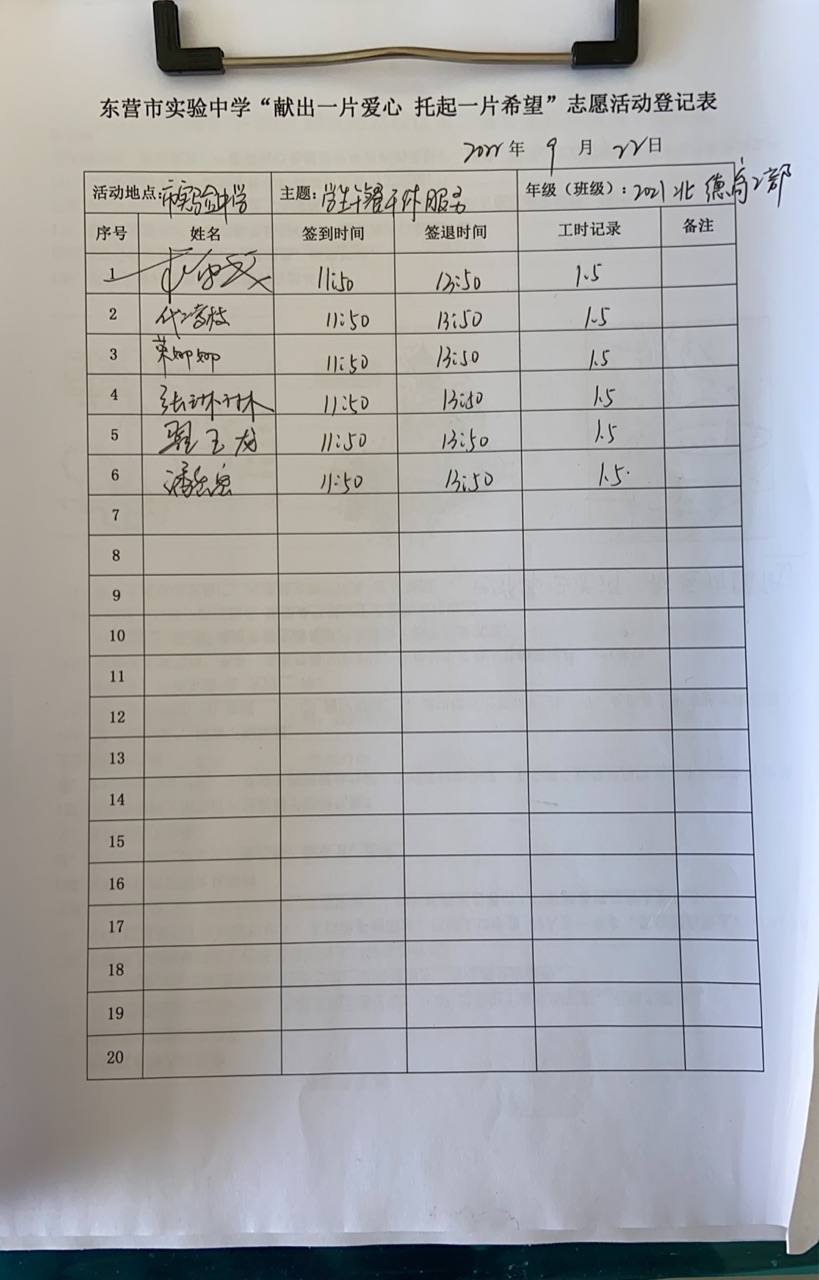 东营市实验中学“献出一片爱心 托起一片希望”志愿活动登记表
2022年 9 月 22日
活动地点:市实验中学 主题:学生午餐午休服务 年级（班级）:2021北 德育2部
序号 姓名 签到时间 签退时间 工时记录 备注
1 11:50 13:50 1.5
2 11:50 13:50 1.5
3 荣娜娜 11:50 13:50 1.5
4 张琳琳 11:50 13:50 1.5
5 翟玉龙 11:50 13:50 1.5
6 11:50 13:50 1.5
7
8
9
10
11
12
13
14
15
16
17
18
19
20